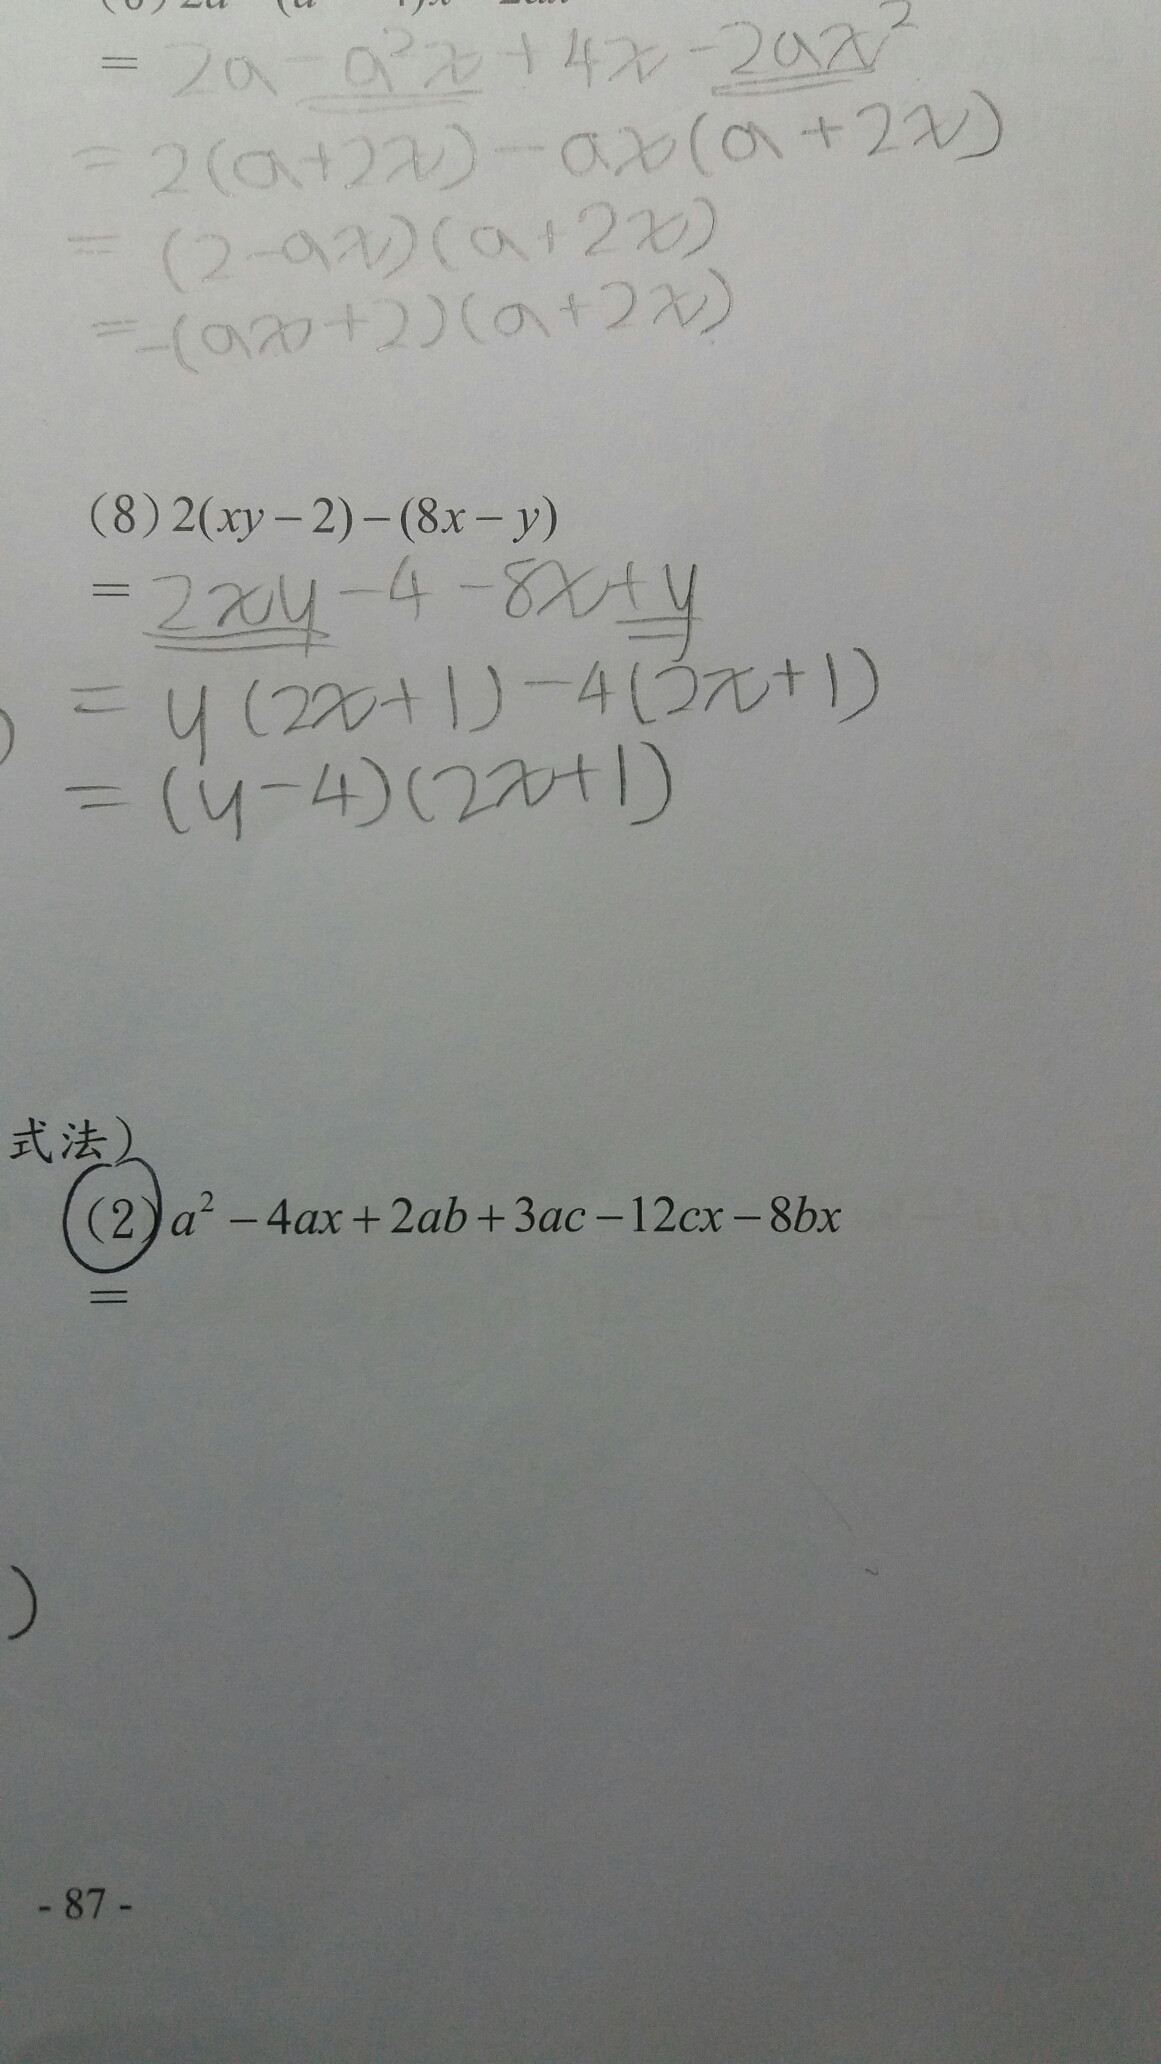 = 2a - a²x + 4x - 2ax²
= 2(a+2x) - ax(a+2x)
= (2-ax)(a+2x)
= -(ax+2)(a+2x)
(8) 2(xy-2)-(8x-y)
= 2xy - 4 - 8x + y
= y(2x+1) - 4(2x+1)
= (y-4)(2x+1)
式法)
(2) a² - 4ax + 2ab + 3ac - 12cx - 8bx
=
)
- 87 -